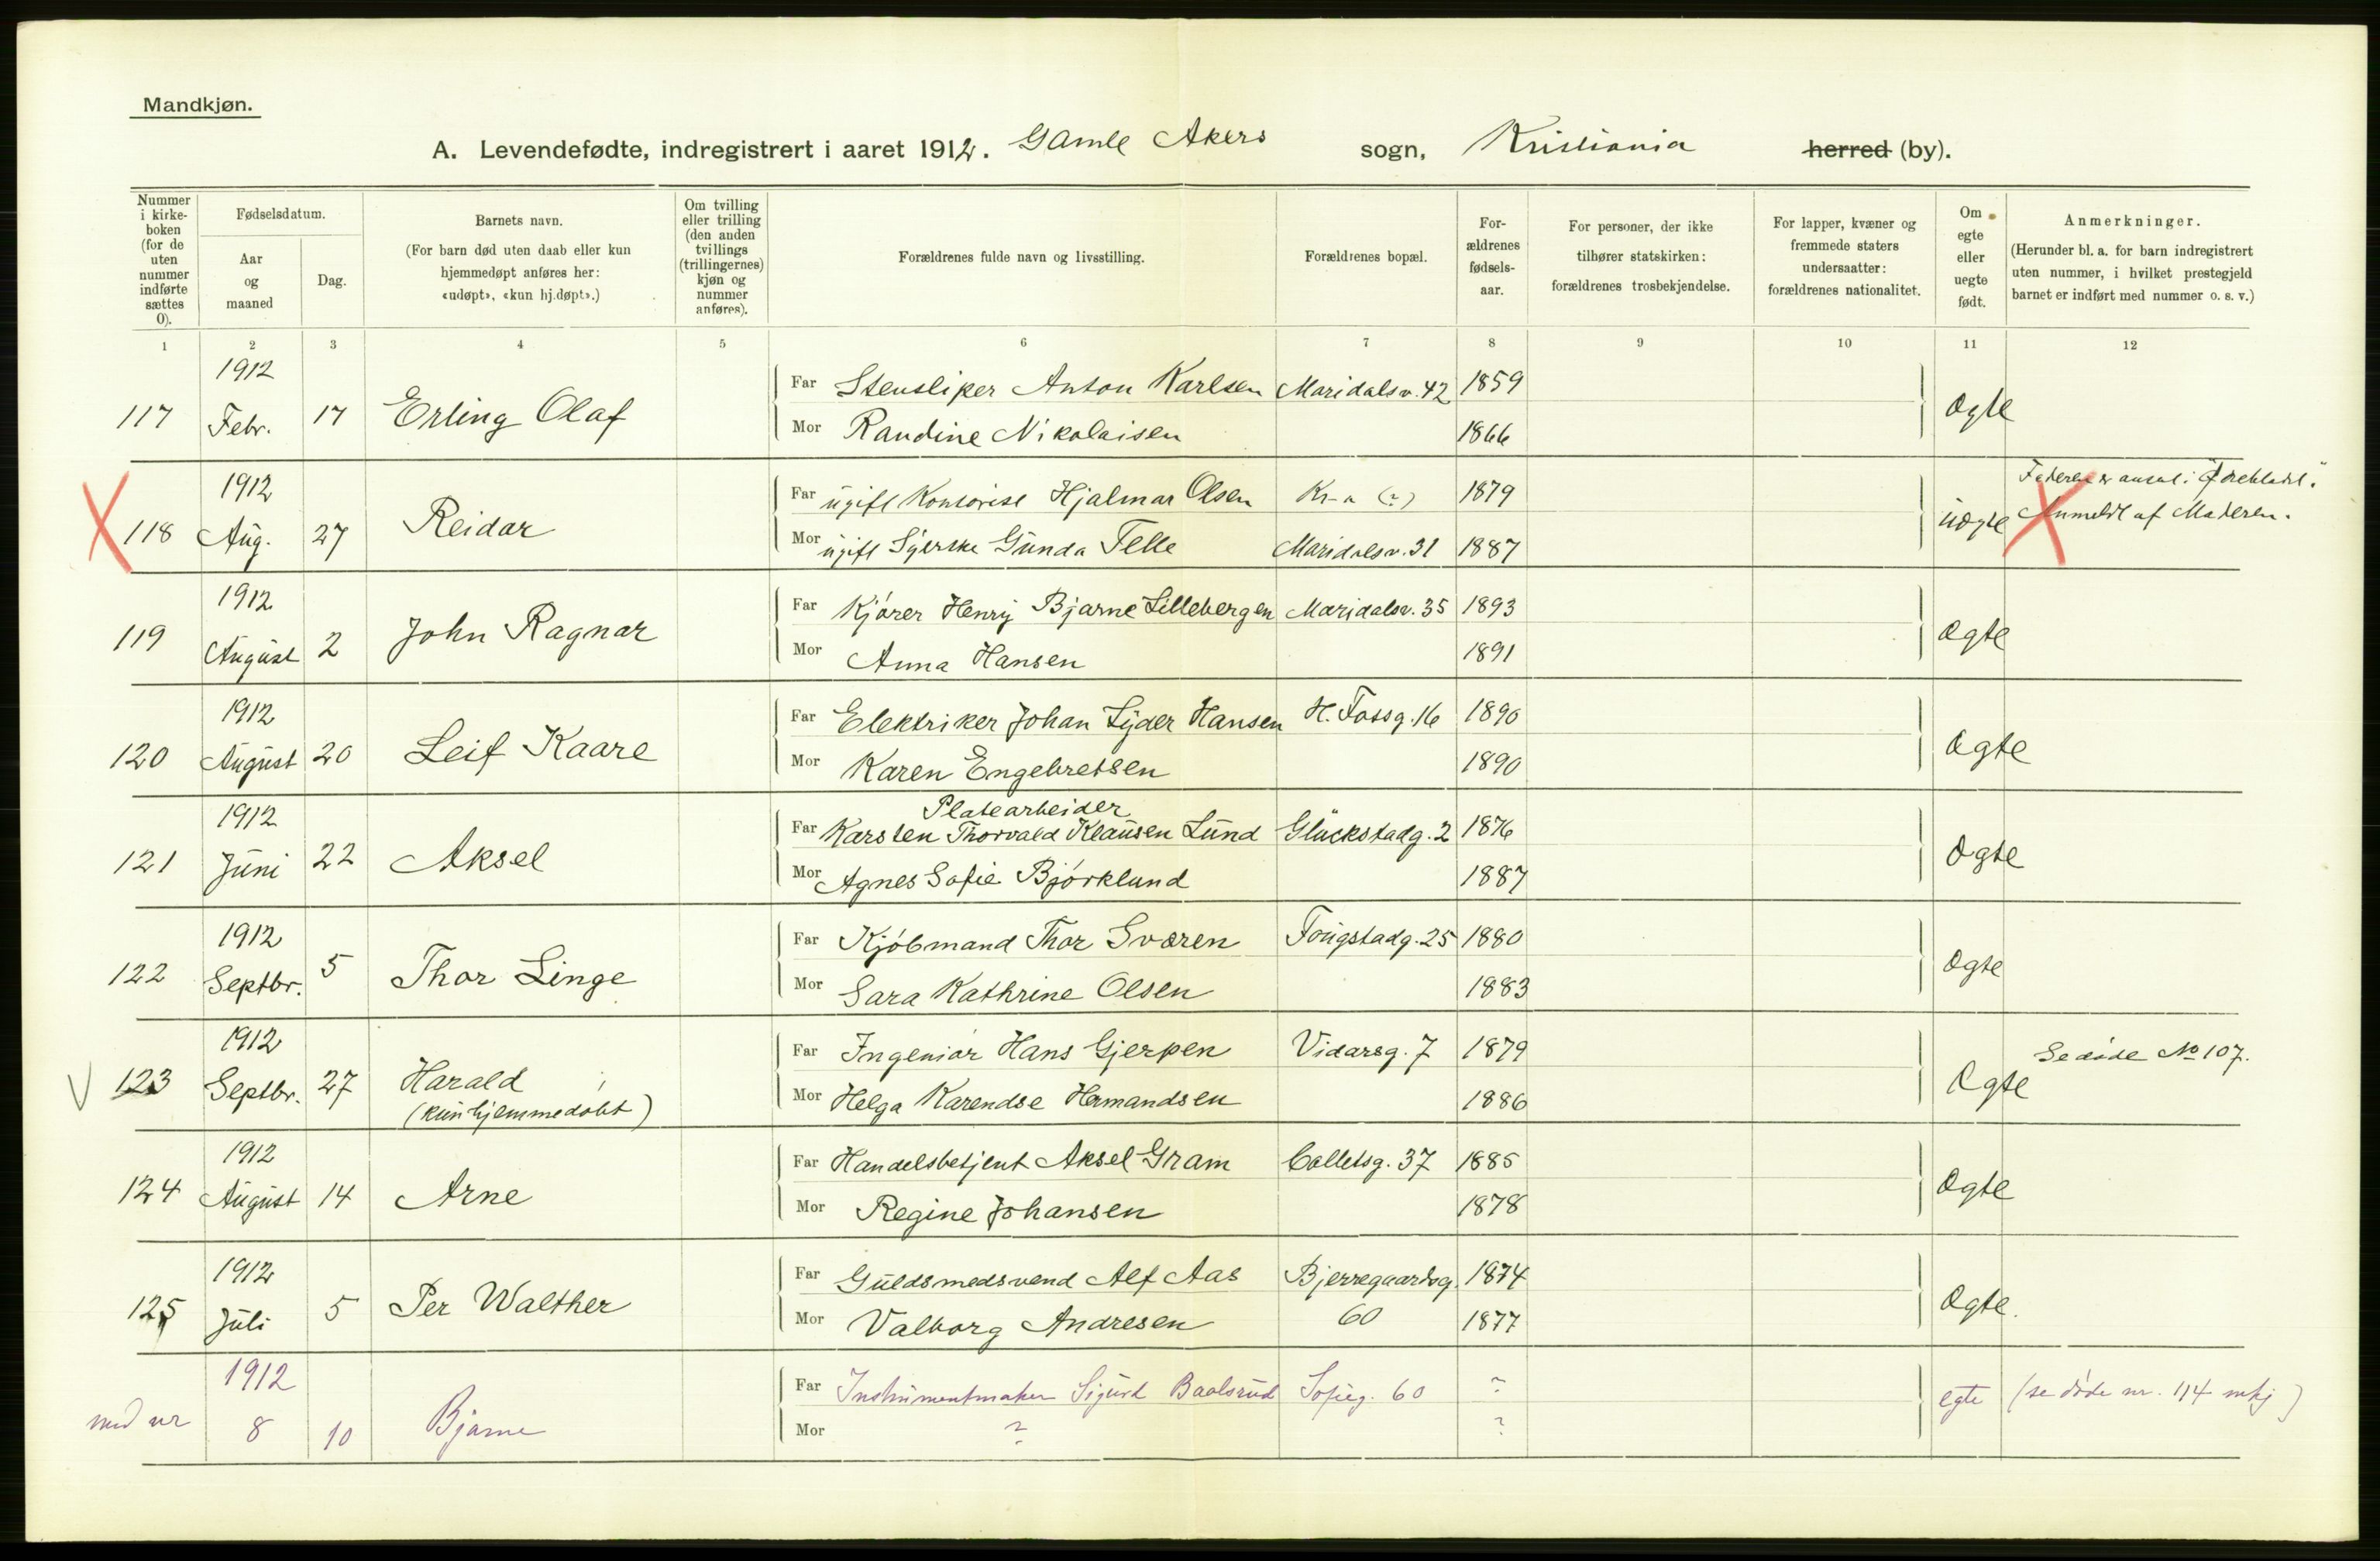 Mandkjøn.
A. Levendefødte, indregistrert i aaret 1912. Gamle Akers sogn, Kristiania herred (by).
Nummer i kirke-boken (for de uten nummer indførte sættes 0).
Fødselsdatum.
Aar og maaned
Dag.
Barnets navn.
(For barn død uten daab eller kun hjemmedøpt anføres her: «udøpt», «kun hj.døpt».)
Om tvilling eller trilling (den anden tvillings (trillingernes) kjøn og nummer anføres).
Forældrenes fulde navn og livsstilling.
Forældrenes bopæl.
For-ældrenes fødsels-aar.
For personer, der ikke tilhører statskirken: forældrenes trosbekjendelse.
For lapper, kvæner og fremmede staters undersaatter: forældrenes nationalitet.
Om egte eller uegte født.
Anmerkninger.
(Herunder bl. a. for barn indregistrert uten nummer, i hvilket prestegjeld barnet er indført med nummer o. s. v.)
1 2 3 4 5 6 7 8 9 10 11 12
117 1912 Febr. 17 Erling Olaf
Far Stensliper Anton Karlsen Maridalsv. 42 1859
Mor Randine Nikolaisen 1866
Ægte
118 1912 Aug. 27 Reidar
Far ugift Kontorist Hjalmar Olsen Kr-a (?) 1879
Mor ugift Syerske Gunda Felle Maridalsv. 31 1887
uægte
Faderen er
Anmeldt af Moderen.
119 1912 August 2 John Ragnar
Far Kjører Henry Bjarne Lillebergen Maridalsv. 35 1893
Mor Anna Hansen 1891
Ægte
120 1912 August 20 Leif Kaare
Far Elektriker Johan Lyder Hansen H. Fossg. 16 1890
Mor Karen Engebretsen 1890
Ægte
121 1912 Juni 22 Aksel
Platearbeider
Far Karsten Thorvald Klausen Lund Glückstadg. 2 1876
Mor Agnes Sofie Bjørklund 1887
Ægte
122 1912 Septbr. 5 Thor Linge
Far Kjøbmand Thor Sværen Fougstadg. 25 1880
Mor Sara Kathrine Olsen 1883
Ægte
V 123 1912 Septbr. 27 Harald
(kun hjemmedøbt)
Far Ingeniør Hans Gjerpen Vidarsg. 7 1879
Mor Helga Karendse Hermandsen 1886
Ægte
Se døde No 107.
124 1912 August 14 Arne
Far Handelsbetjent Aksel Gram Colletsg. 37 1885
Mor Regine Johansen 1878
Ægte
125 1912 Juli 5 Per Walther
Far Guldsmedsvend Alf Aas Bjerregaardsg. 1874
Mor Valborg Andresen 60 1877
Ægte.
med nr 1912 8 10 Bjarne
Far Instrumentmaker Sigurd Baalsrud Sofieg. 60 ?
Mor ? ?
egte (se døde nr. 114 mkj)